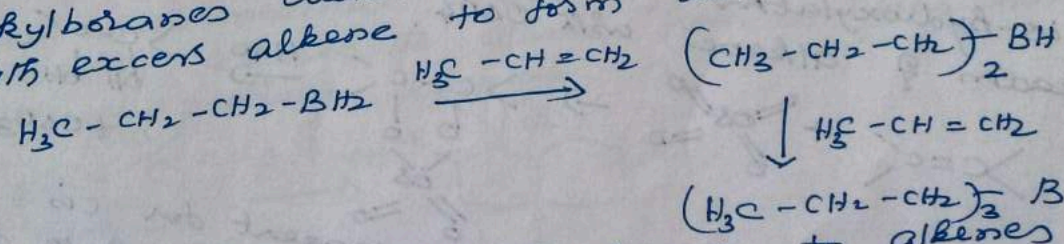 kylboranes to form
th excess alkene
H₃C - CH₂ - CH₂ - BH₂ H₃C - CH = CH₂ (CH₃ - CH₂ - CH₂)₂ BH
H₃C - CH = CH₂
(H₃C - CH₂ - CH₂)₃ B
alkenes